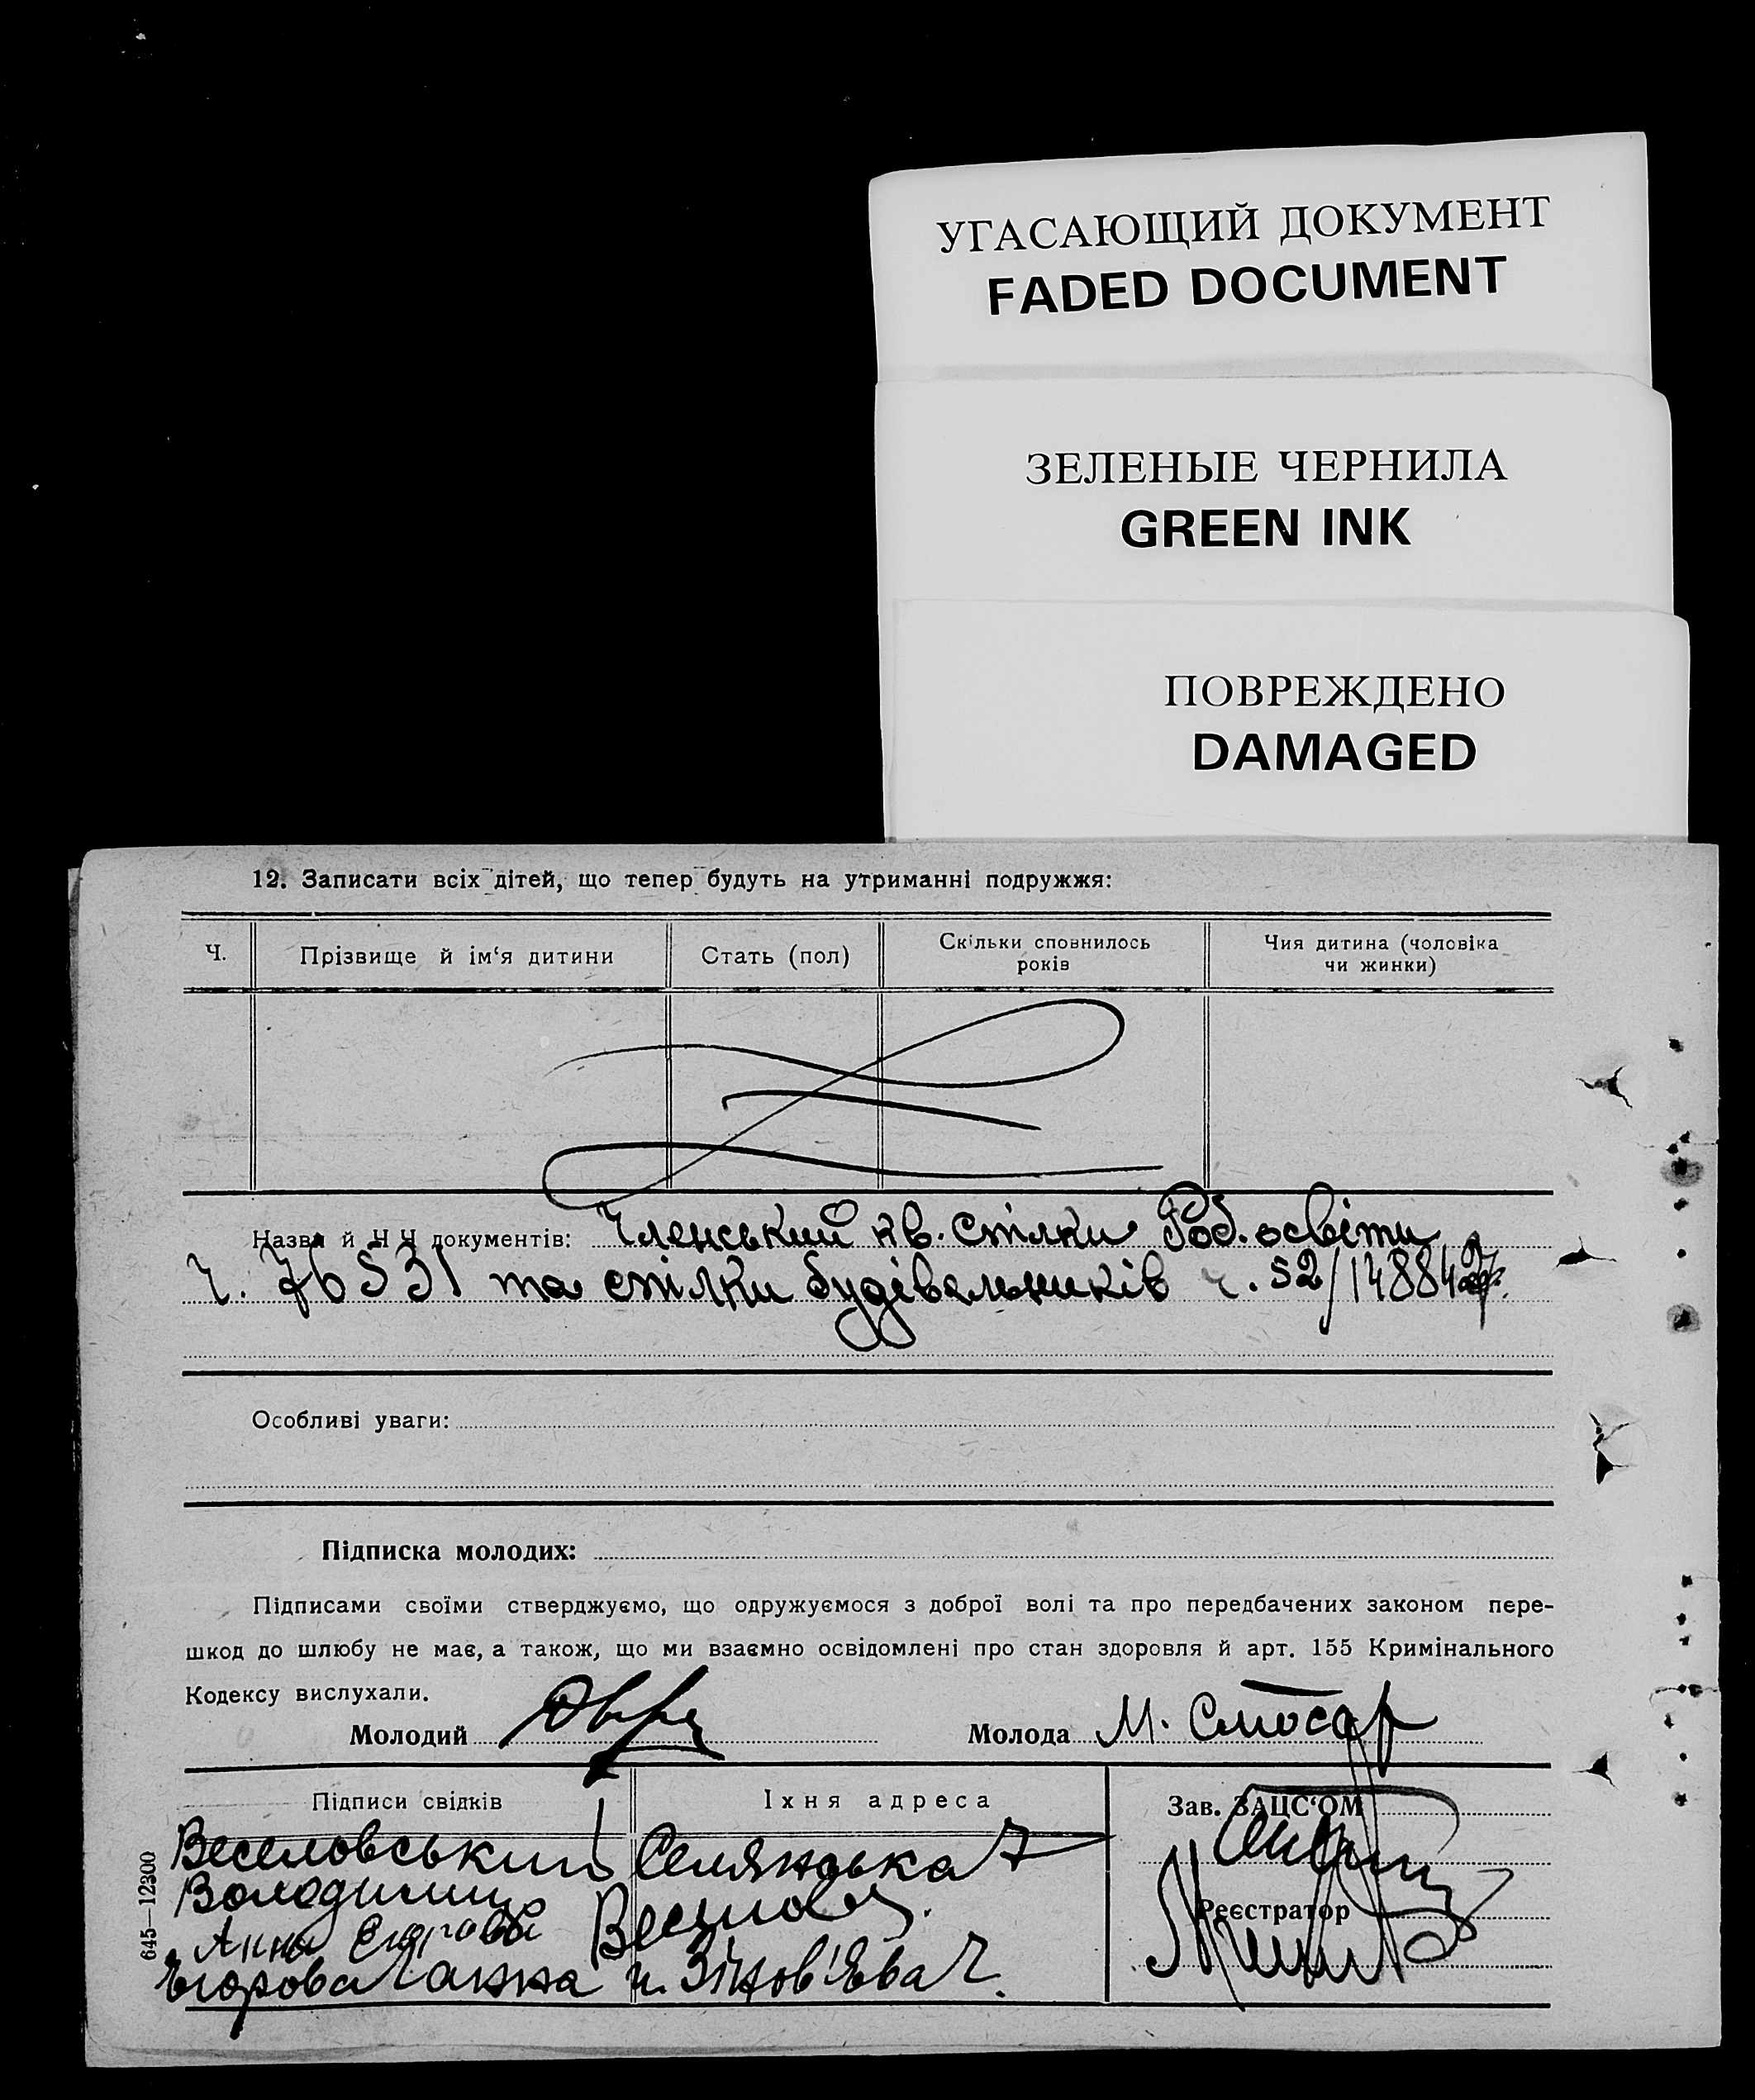 УГАСАЮЩИЙ ДОКУМЕНТ
FADED DOCUMENT
ЗЕЛЕНЫЕ ЧЕРНИЛА
GREEN INK
ПОВРЕЖДЕНО
DAMAGED
12. Записати всіх дітей, що тепер будуть на утриманні подружжя:
Ч. Прізвище й ім'я дитини Стать (пол) Скільки сповнилось років Чия дитина (чоловіка чи жинки)
Назва й Ч Ч документів: Членський кв. спілки Роб. освіти
ч. 76531 та спілки будівельників ч. 52/148842
Особливі уваги:
Підписка молодих:
Підписами своїми стверджуємо, що одружуємося з доброї волі та про передбачених законом пере-
шкод до шлюбу не має, а також, що ми взаємно освідомлені про стан здоровля й арт. 155 Кримінального
Кодексу вислухали.
Молодий Молода М. Слюсар
Підписи свідків Їхня адреса Зав. ЗАЦС'ОМ
Веселовський Селянська 7
Володимир
Реєстратор
Анна
Єгорова Ганна п. Зінов'єва
645—12300